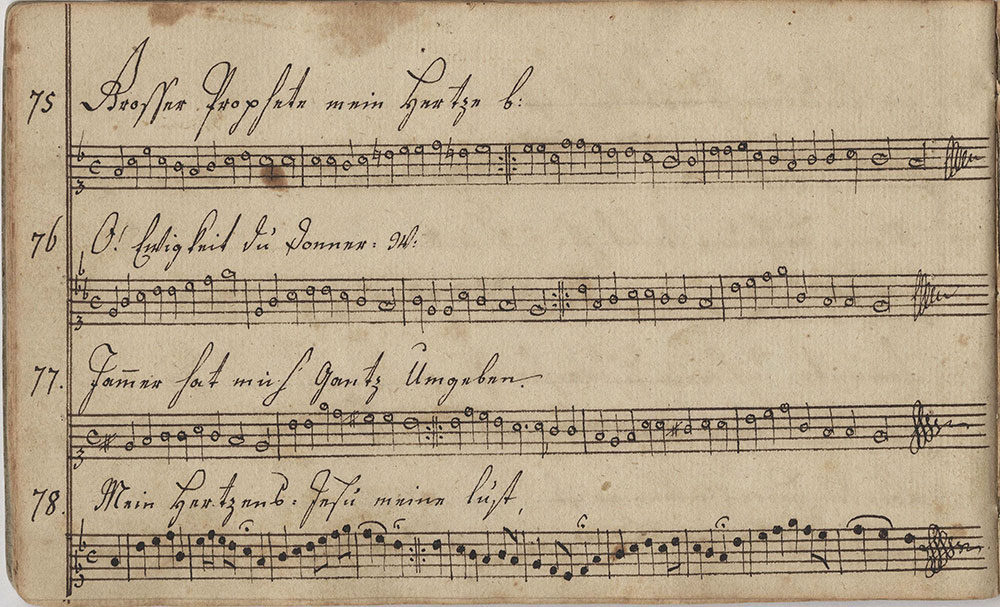 75 Grosser Prophete mein Hertze b:
76 O! Ewigkeit du Donner: W:
77. Jam̅er hat mich Gantz Umgeben.
78. Mein Hertzens: Jesu meine lust,